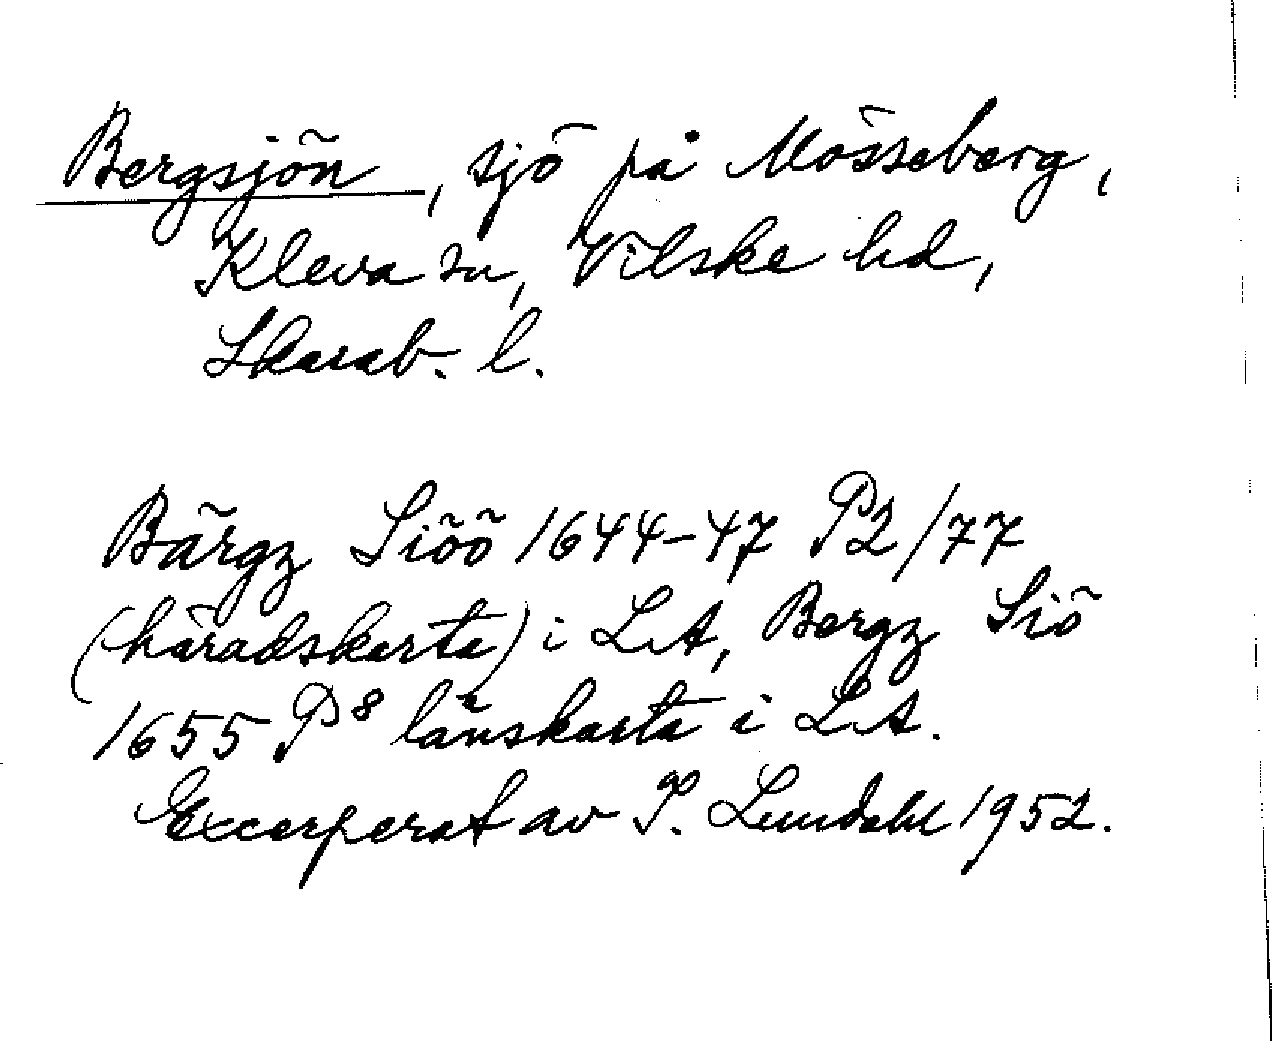 Bergsjön, sjö på Mösseberg,
Kleva sn, Vilske hd,
Skarab. l.
Bärgz Siöö 1644-47 P2/77
(häradskarta) i LA, Bergz Siö
1655 P8 länskarta i LA.
Excerperat av P. Lundahl 1952.